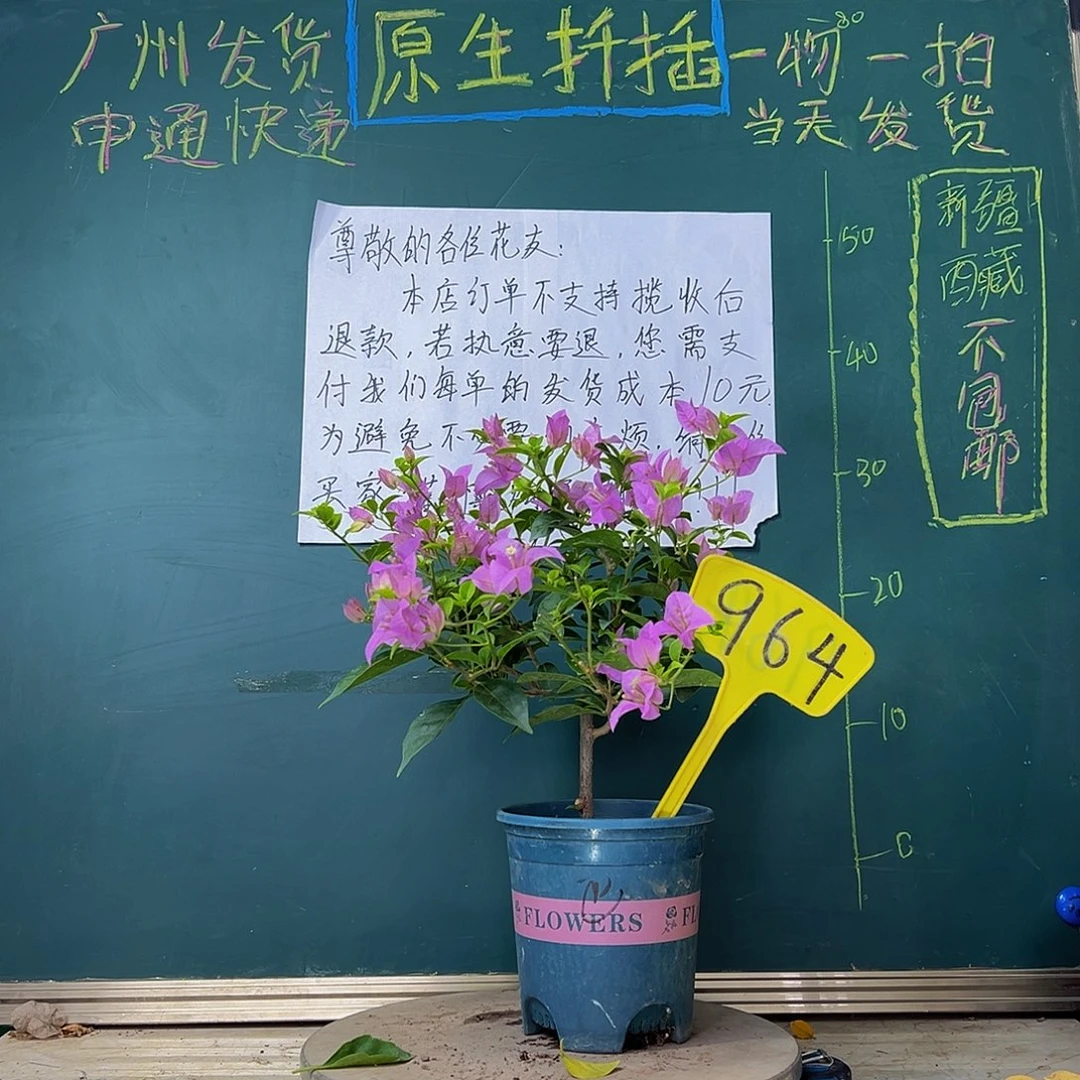 广州发货
申通快递
原生扦插
一物一拍
当天发货
新疆
西藏
不包邮
尊敬的各位花友:
本店订单不支持揽收后
退款,若执意要退,您需支
付我们每单的发货成本10元.
为避免不 要 烦,
买家
50
40
30
20
10
0
964
FLOWERS
FL